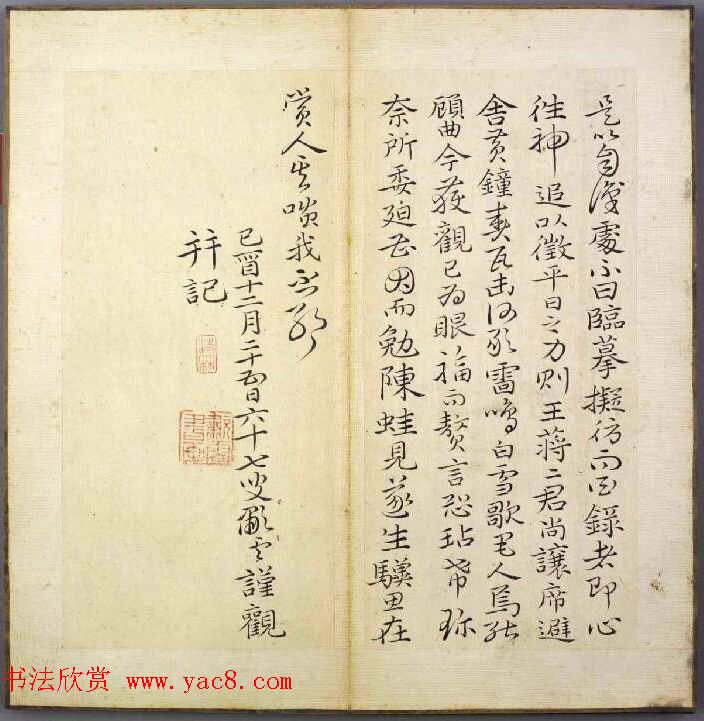 是以自處不曰臨摹擬彷而曰錄者即心
往神追以徵平日之力則王蔣二君尚讓席避
舍黃鐘奏瓦缶何雷鳴白雪歌人焉能
顧曲今獲觀已為眼福而贅言恐玷希珎
奈所委廹甚因而勉陳蛙見遂生驥思在
賞人其嗤我否耶
己酉十二月二十五日六十七叟雲謹觀
并記
书法欣赏 www.yac8.com